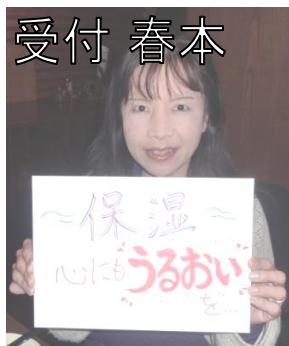 受付 春本
～保湿～
心にも
うるおい
を…